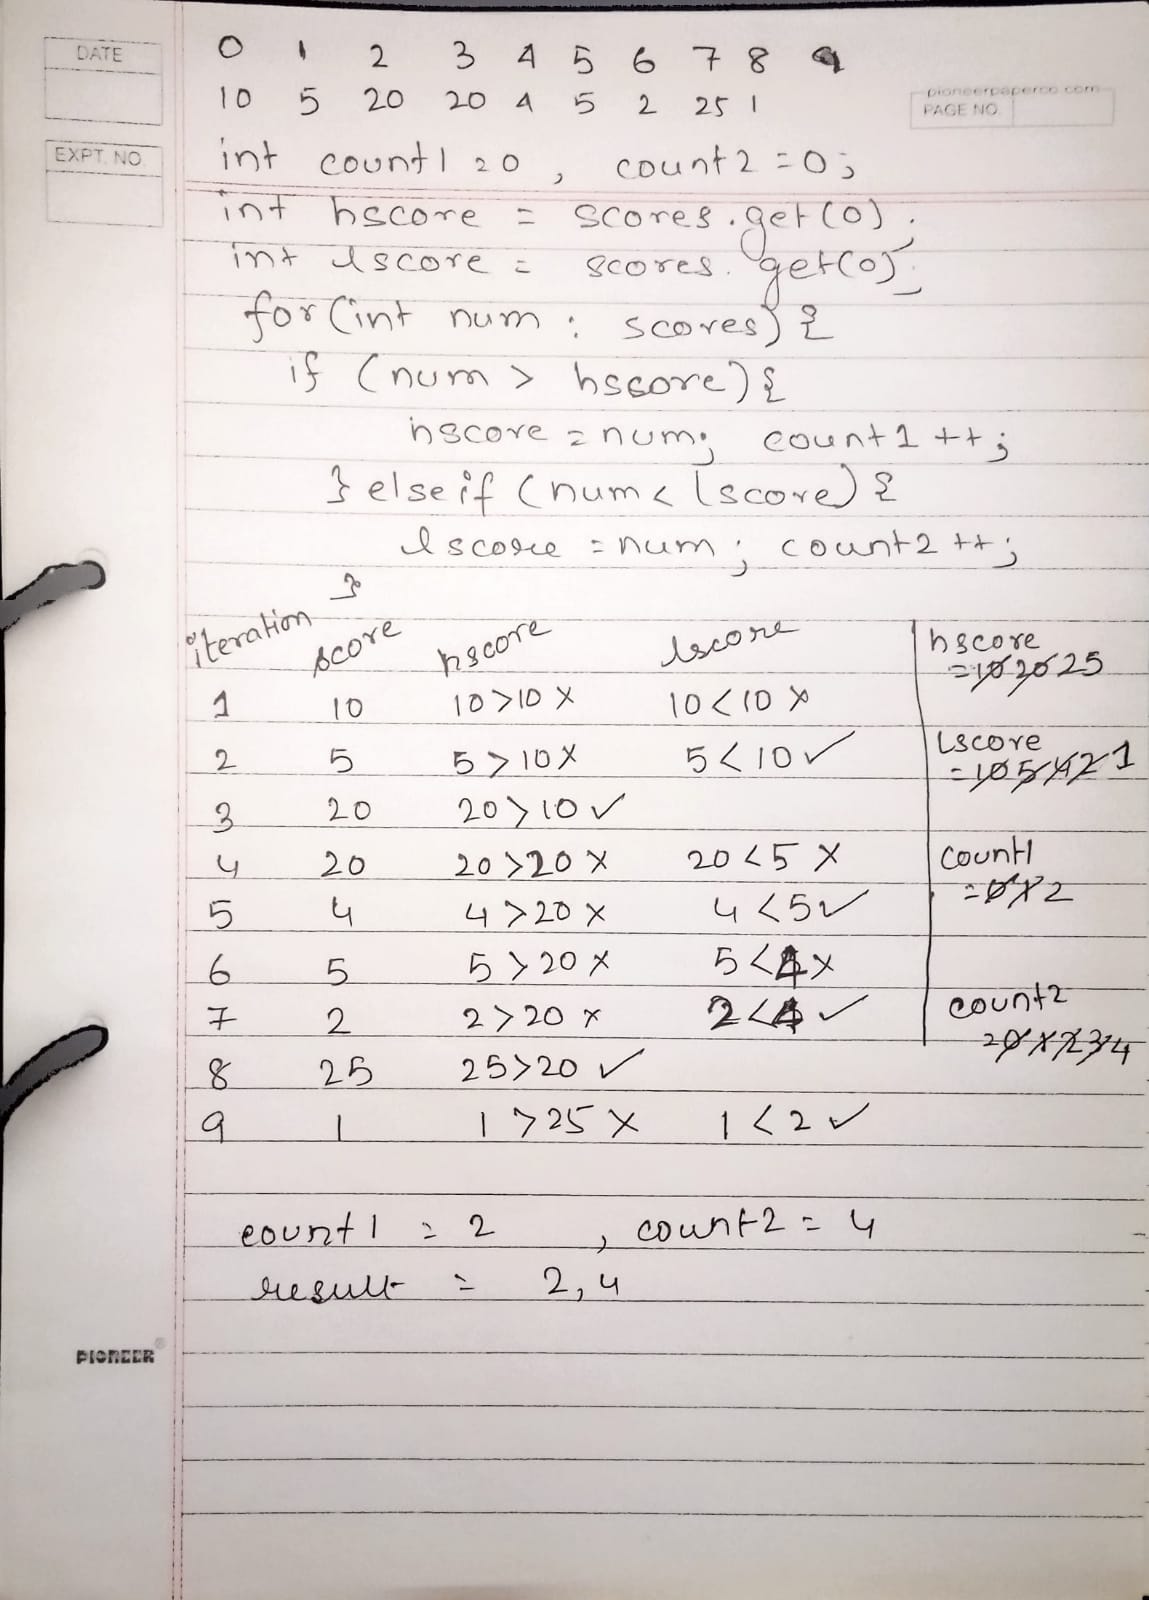 DATE
EXPT. NO.
pioneerpaperco.com
PAGE NO.
0 1 2 3 4 5 6 7 8
10 5 20 20 4 5 2 25 1
int count1 = 0 , count2 = 0;
int hscore = scores.get(0);
int lscore = scores.get(0);
for(int num : scores){
if (num > hscore){
hscore = num; count1 ++;
} else if (num < lscore) {
lscore = num; count2 ++;
}
iteration score hscore lscore
1 10 10>10 x 10<10 x
2 5 5>10 x 5<10 ✓
3 20 20>10 ✓
4 20 20>20 x 20<5 x
5 4 4>20 x 4<5 ✓
6 5 5>20 x 5<4 x
7 2 2>20 x 2<4 ✓
8 25 25>20 ✓
9 1 1>25 x 1<2 ✓
hscore
= 10 20 25
Lscore
= 10 5 4 2 1
count1
= 0 1 2
count2
= 0 1 2 3 4
count1 = 2 , count2 = 4
result = 2, 4
PIONEER